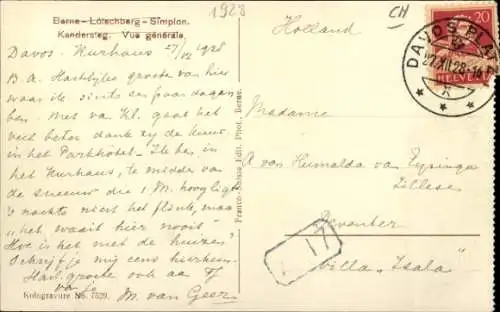 1928
CH
Berne-Lötschberg-Simplon.
Kandersteg. Vue générale.
Holland
DAVOS PLATZ
27.XII.28
20
HELVETIA
Davos. Kurhaus 27/12 1928
B. A. Hartelijke groete van hier
waar ik sints een paar dagen
ben. Met van Kl. gaat het
veel beter dank zy de kuur
in het Parkhotel. Ik ben in
het Kurhaus, te midden van
de sneeuw die 1 M. hoog ligt
's nachts niest het flink, maar
"het waait hier nooit"
Hoe is het met de huizen?
Schrijf je mij eens hierheen
Hart. groete ook aa
van je M. van Geer
Madame
A van Humalda van Eysinga
Deventer
Villa "Isala"
17
Franco-Suisse Edit. Phot. Berne.
Kologravure No. 7529.